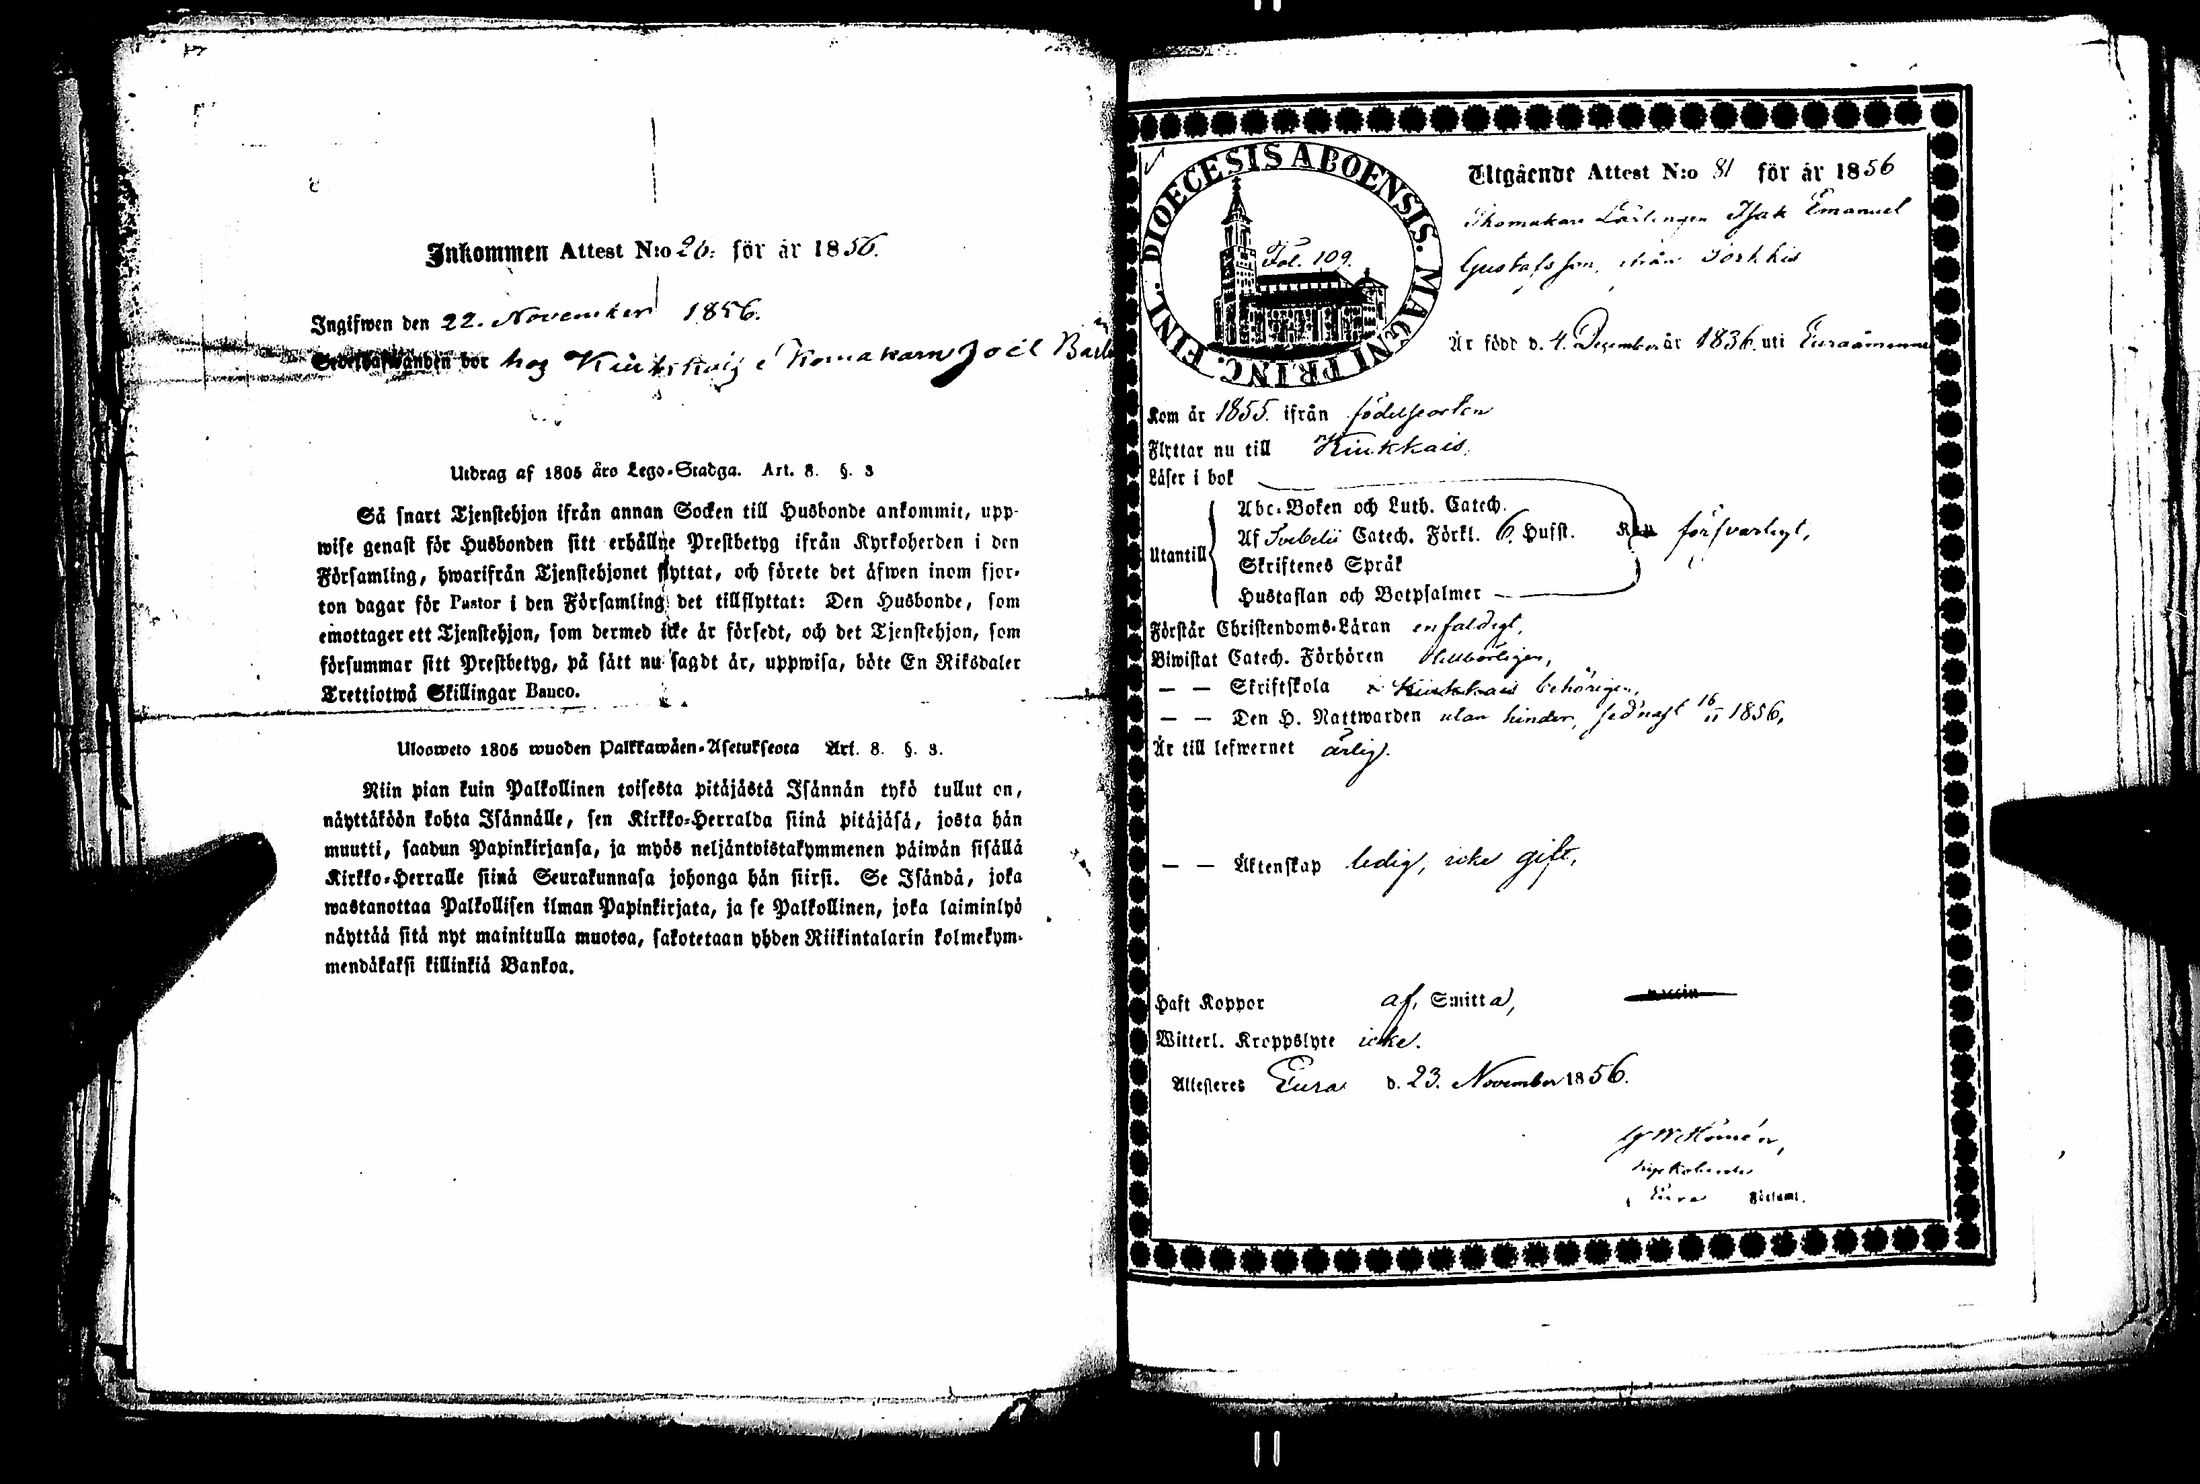 Inkommen Attest N:o 26: för år 1856.
Ingifwen den 22. November 1856.
Sedelhafwanden bor hos Kiukkais Skomakarn Joel
Utdrag af 1805 års Lego-Stadga. Art. 8. §. 3
Så snart Tjenstehjon ifrån annan Socken till Husbonde ankommit, upp-
wise genast för Husbonden sitt erhållne Prestbetyg ifrån Kyrkoherden i den
Församling, hwarifrån Tjenstehjonet flyttat, och förete det äfwen inom fjor-
ton dagar för Pastor i den Församling det tillflyttat: Den Husbonde, som
emottager ett Tjenstehjon, som dermed icke är försedt, och det Tjenstehjon, som
försummar sitt Prestbetyg, på sätt nu sagdt är, uppwisa, böte En Riksdaler
Trettiotwå Skillingar Banco.
Ulosweto 1805 wuoden Palkkawäen-Asetuksesta Art. 8. §. 3.
Niin pian kuin Palkollinen toisesta pitäjästä Isännän tykö tullut on,
näyttäköön kohta Isännälle, sen Kirkko-Herralda siinä pitäjäsä, josta hän
muutti, saadun Papinkirjansa, ja myös neljäntoistakymmenen päiwän sisällä
Kirkko-Herralle siinä Seurakunnasa johonga hän siirsi. Se Isändä, joka
wastanottaa Palkollisen ilman Papinkirjata, ja se Palkollinen, joka laiminlyö
näyttää sitä nyt mainitulla muotoa, sakotetaan yhden Riikintalarin kolmekym-
mendäkaksi killinkiä Bankoa.
DIOECESIS ABOENSIS. MAGNI PRINC. FINL.
Fol. 109.
Utgående Attest N:o 81 för år 1856
Skomakare Lärlingen Isak Emanuel
Gustafsson, ifrån
Är född d. 4. December år 1836. uti Euraåminne
Kom år 1855. ifrån födelseorten
Flyttar nu till Kiukkais,
Läser i bok
Abc-Boken och Luth. Catech.
Utantill Af Svebelii Catech. Förkl. 6. Hufst. försvarligt,
Skriftenes Språk
Hustaflan och Botpsalmer
Förstår Christendoms-Läran enfaldigt,
Biwistat Catech. Förhören
— — Skriftskola i Kiukkais behörigen,
— — Den H. Nattwarden utan hinder, sednast 16/11 1856,
Är till lefwernet ärlig.
— — Äktenskap ledig, icke gift,
Haft Koppor af Smitta,
Witterl. Kroppslyte icke.
Attesteres Eura d. 23. November 1856.
Eura Församl.